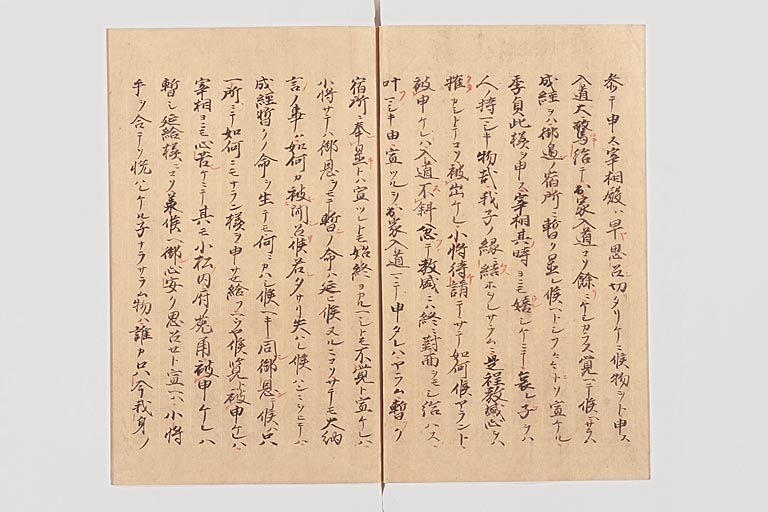 参テ申ス宰相殿ハ早思召切タリケニ候物ヲト申ス
入道大驚給テ出家入道マテ餘ニケシカラス覚ヘ候サラハ
成経ヲハ御邊ノ宿所ニ暫ク置レ候ヘトシフ〳〵ニソ宣ケル
季貞此様ヲ申ス宰相其時ヨニモ嬉シケニテ哀レ子ヲハ
人ノ持マシキ物哉我子ノ縁ニ結ホレサラムニハ是程教盛心ヲハ
摧カシトテコソ被出ケレ小将待請テサテ如何候ヤラント
被申ケレハ入道不斜忿テ教盛ニハ終ニ對面ヲモシ給ハス
叶マシキ由宣ツルヲ出家入道マテ申タレハヤラム暫ク
宿所ニ奉置トハ宣ツレトモ始終ヨカルヘシトモ不覚ト宣ケレハ
小将サテハ御恩ヲモテ暫ノ命ハ延ヒ候ヌルニコソサテモ大納
言ノ事ハ如何カ被聞召候
成経暫クノ命ヲ生テモ何ニカハシ候ヘキ同御恩ニテ候ハヽ只
一所ニテ如何ニモナラン様ヲ申サセ給フヘウヤ候覧ト被申ケレハ
宰相ヨニモ心苦ケニテ其モ小松内府ノ兎角被申ケレハ
暫シ延給様ニコソ承候ヘ御心安ク思召セト宣ヘハ小将
手ヲ合テソ悦ハレケル子ナラサラム物ハ誰カ只今我身ノ